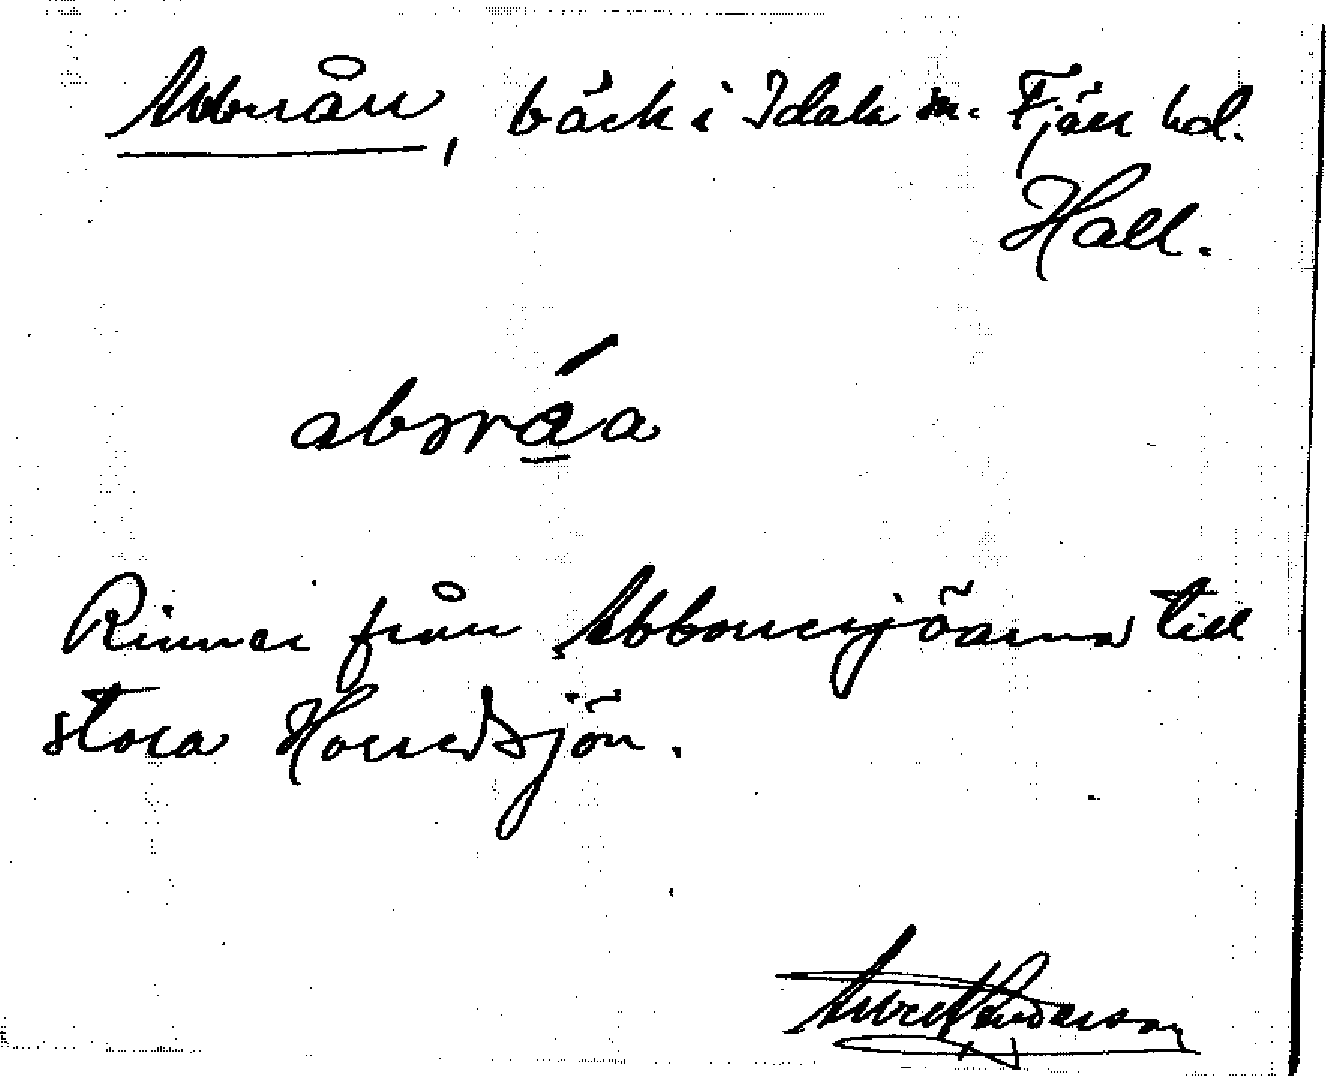 Abbrån, bäck i Idala sn. Fjäre hd.
Hall.
abrráa
Rinner från Abborrsjöarna till
stora Horredsjön.